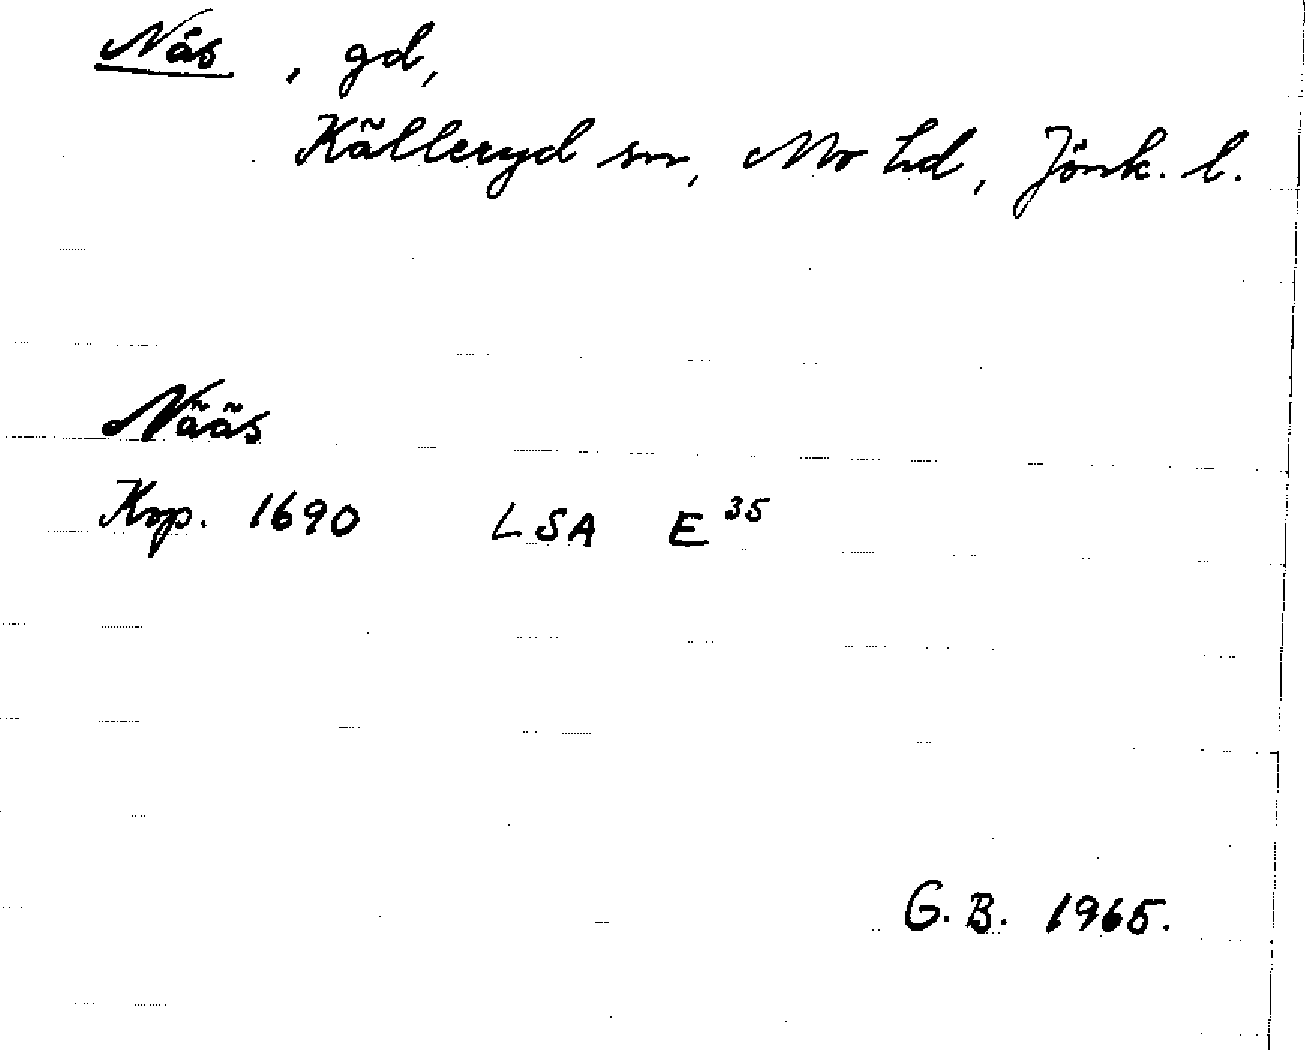 Näs, gd,
Källeryd sn, Mo hd, Jönk. l.
Nääs
Krp. 1690 LSA E 35
G. B. 1965.